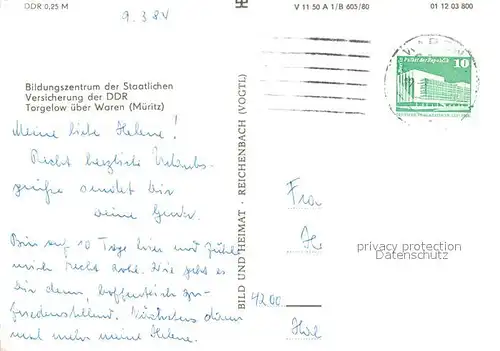 DDR 0,25 M
9.3.84
V 11 50 A 1/B 605/80
01 12 03 800
Bildungszentrum der Staatlichen
Versicherung der DDR
Torgelow über Waren (Müritz)
Meine liebe Helene!
Recht herzliche Urlaubs-
grüße sendet Dir
deine
Bin auf 10 Tage hier und fühle
mich recht wohl. Wie geht es
Dir denn, hoffentlich zu-
friedenstellend. Nächstens dann
mal mehr meine Helene.
BILD UND HEIMAT · REICHENBACH (VOGTL)
Palast der Republik
10
DDR
Fra
He
privacy protection
Datenschutz
4200
Hal